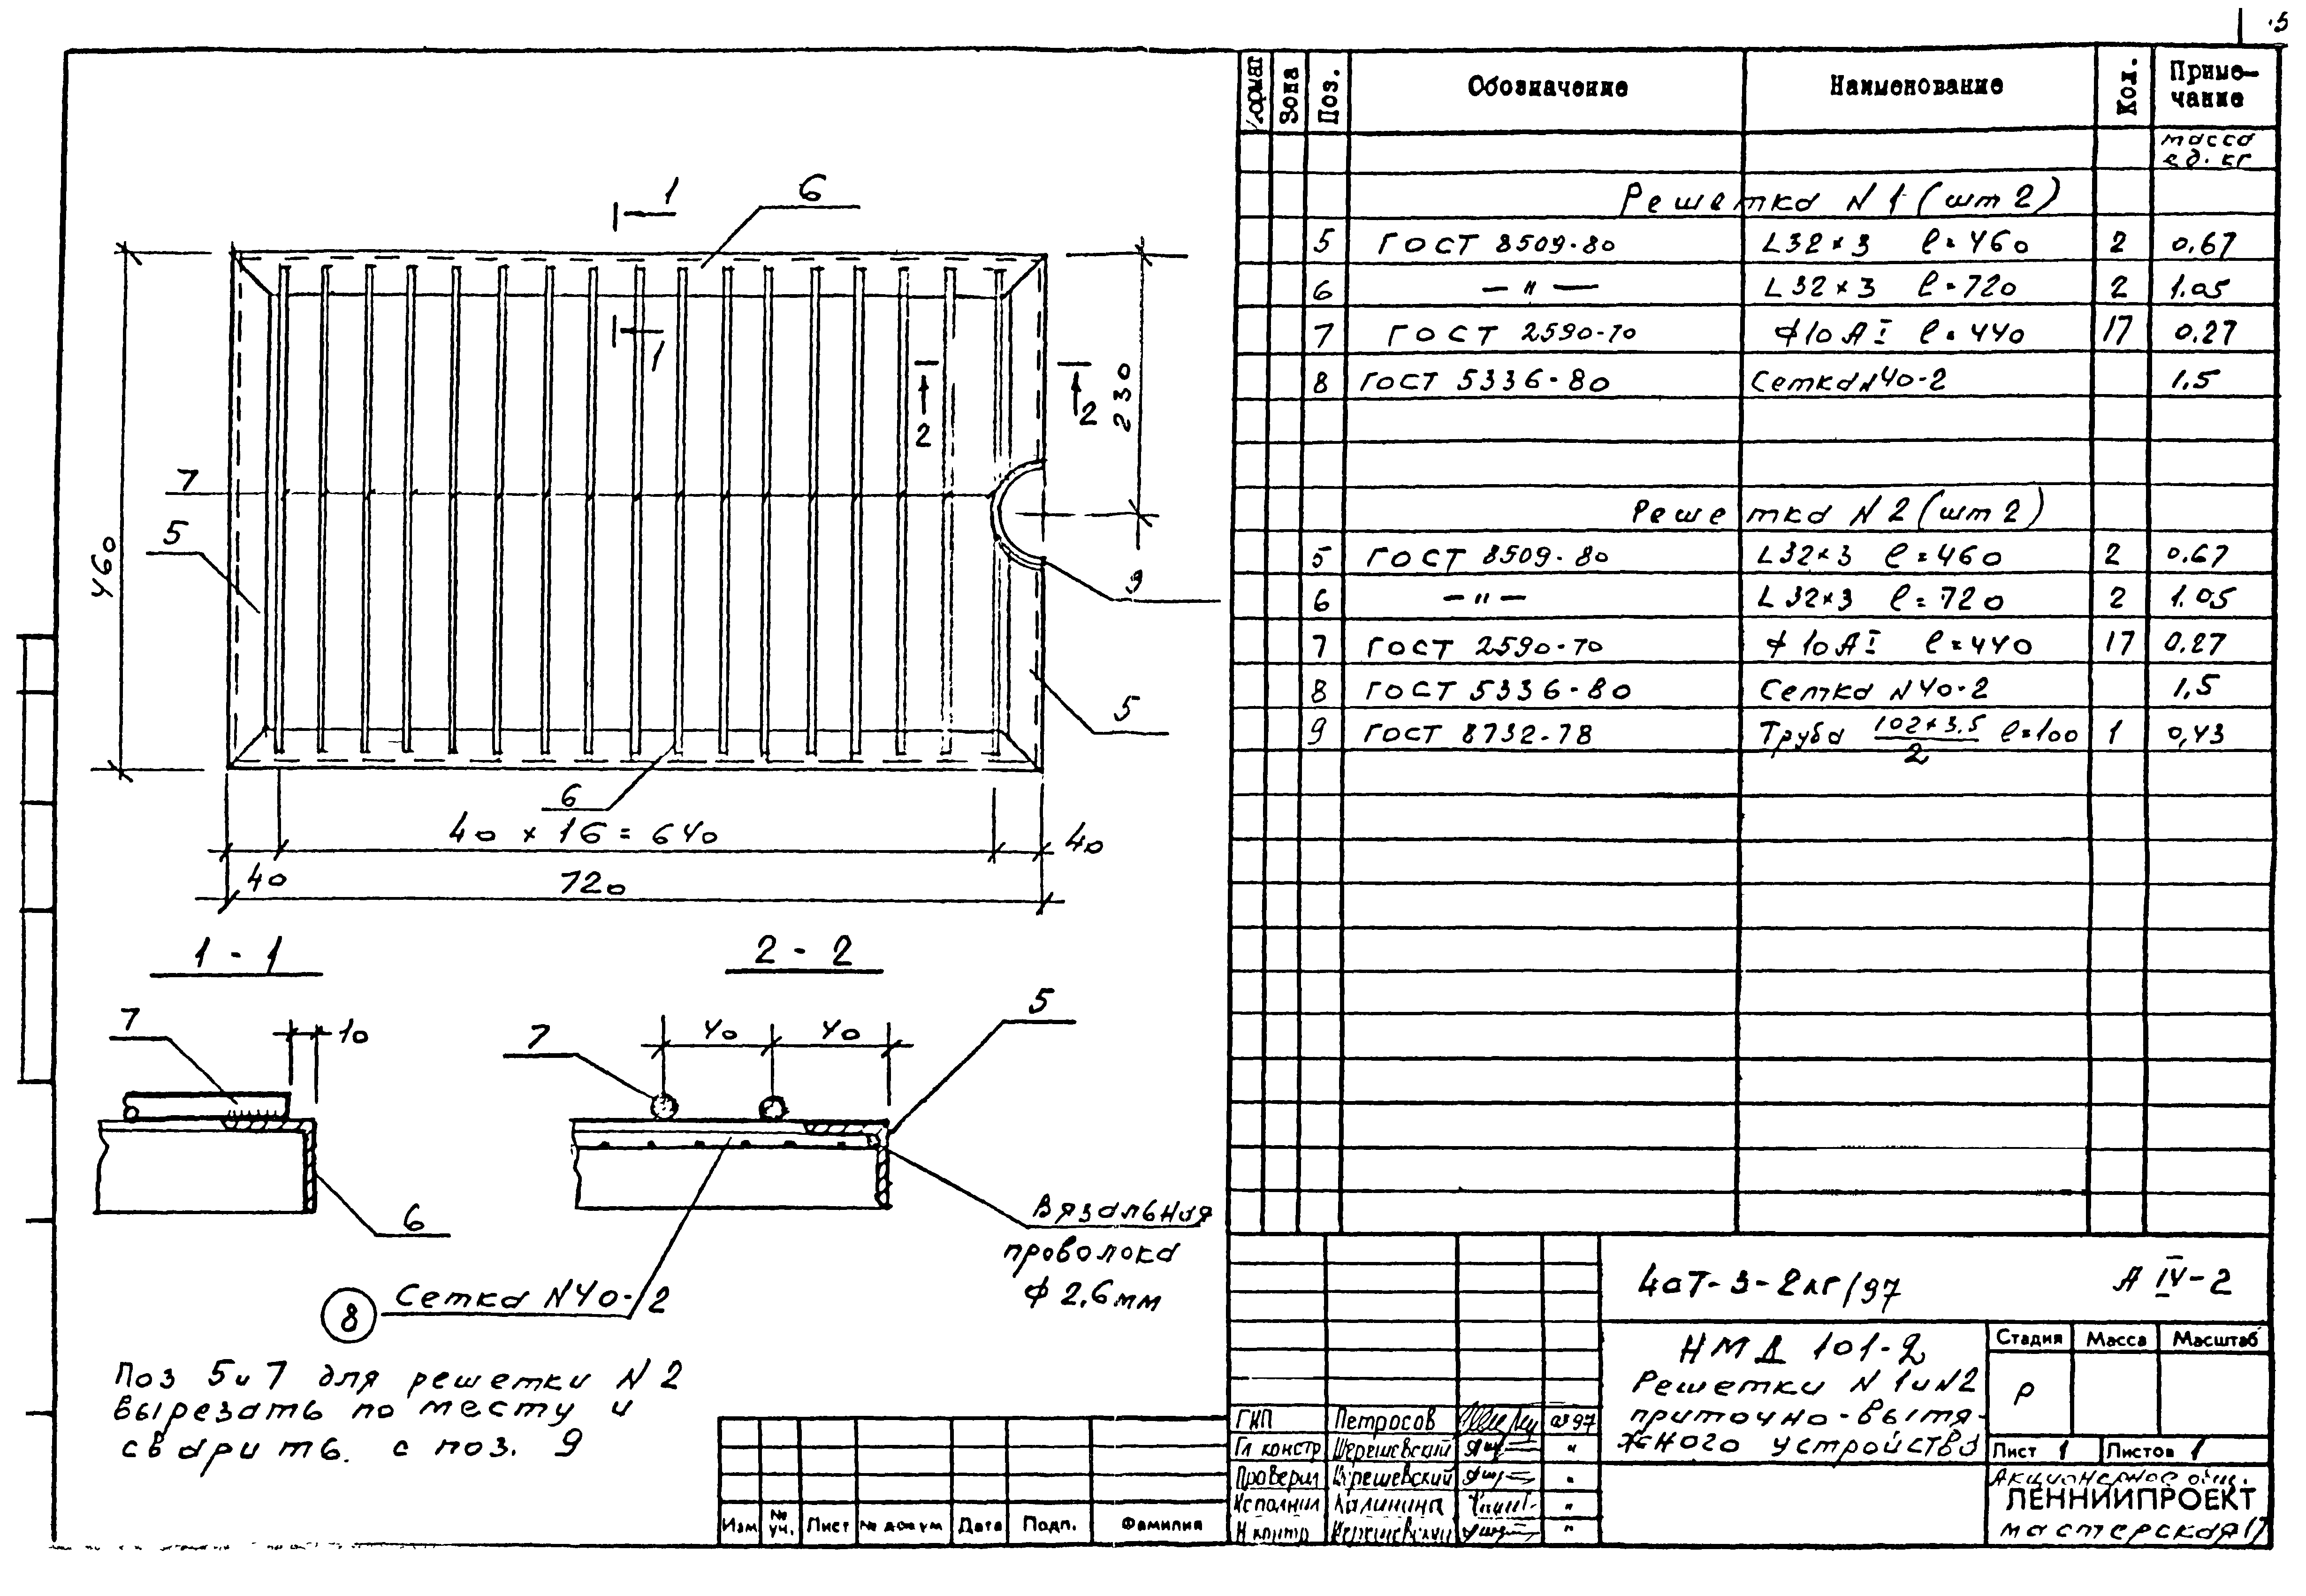 5
1
6
1
2
2
230
460
7
5
9
5
6
40 × 16 = 640
40
40
720
1 - 1
2 - 2
7
10
6
7
40
40
5
Вязальная
проволока
ф 2,6 мм
8 Сетка N40-2
Поз 5и7 для решетки N2
вырезать по месту и
сварить с поз. 9
Формат Зона Поз. Обозначение Наименование Кол. Приме-
чание
масса
ед. кг
Решетка N1 (шт 2)
5 ГОСТ 8509-80 L32×3 ℓ=460 2 0.67
6 — " — L32×3 ℓ=720 2 1.05
7 ГОСТ 2590-70 ф10АI ℓ=440 17 0.27
8 ГОСТ 5336-80 Сетка N40-2 1.5
Решетка N2 (шт 2)
5 ГОСТ 8509-80 L32×3 ℓ=460 2 0.67
6 — " — L32×3 ℓ=720 2 1.05
7 ГОСТ 2590-70 ф10АI ℓ=440 17 0.27
8 ГОСТ 5336-80 Сетка N40-2 1,5
9 ГОСТ 8732-78 Труба 102×3,5/2 ℓ=100 1 0,43
40Т-3-2кг/97 А IV-2
НМД 101-2
Решетки N1иN2
приточно-вытя-
жного устройства
Стадия Масса Масштаб
Р
Лист 1 Листов 1
Акционерное общ.
ЛЕННИИПРОЕКТ
мастерская 17
ГИП Петросов 97
Гл констр Шерешевский "
Проверил Шерешевский "
Исполнил Калинина "
Н контр Шерешевский "
Изм № уч. Лист № докум Дата Подп. Фамилия